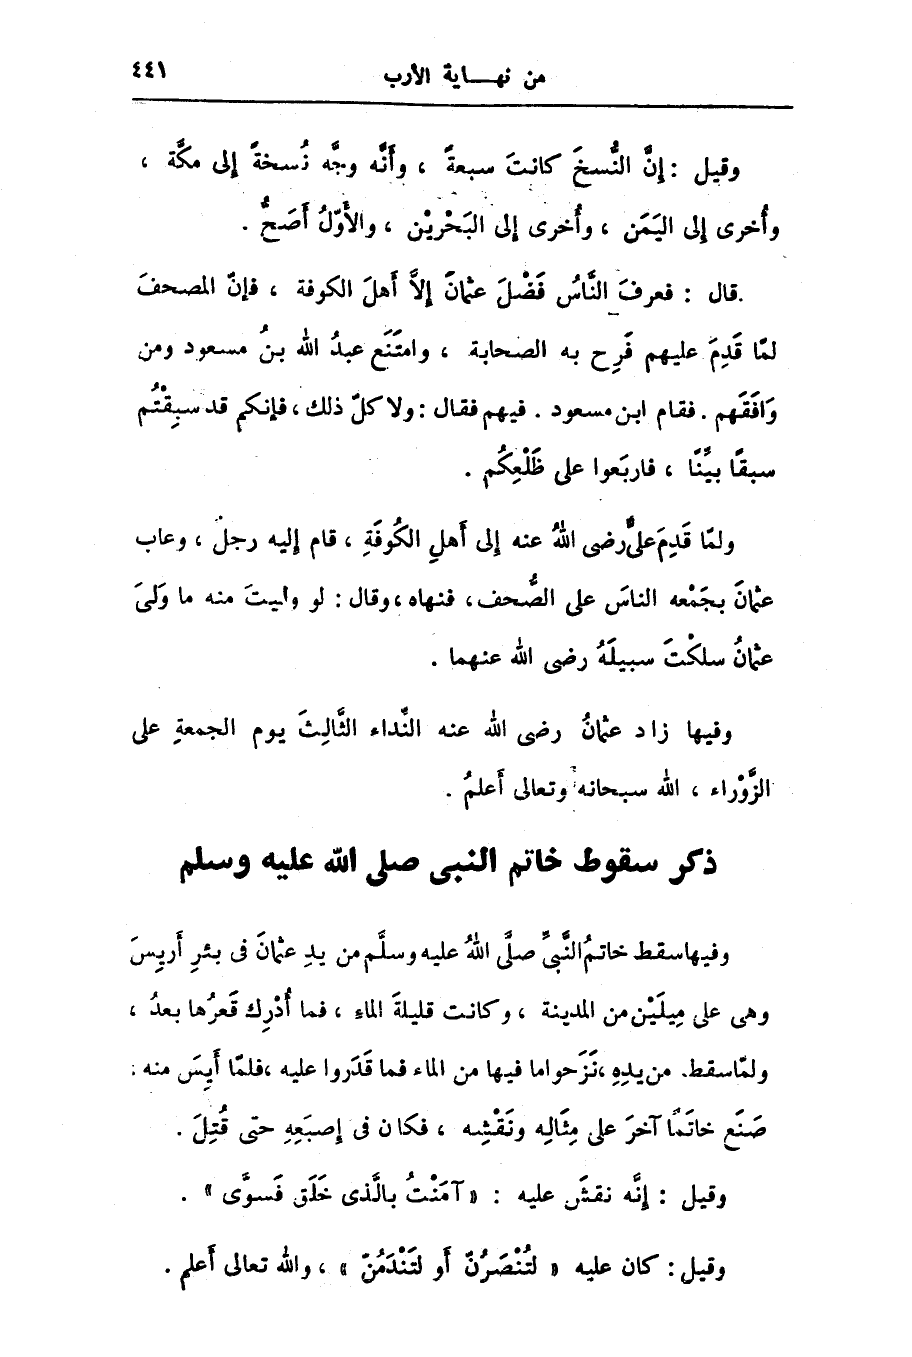 من نهـــاية الأرب ٤٤١
وقيل : إنَّ النُّسخَ كانتَ سبعةً ، وأنَّه وجَّه نُسخةً إلى مكَّة ،
وأُخرى إلى اليَمَن ، وأُخرى إلى البَحْريْن ، والأوّلُ أصَحُّ .
قال : فعرفَ النَّاسُ فَضْلَ عثمانَ إلاَّ أهلَ الكوفة ، فإنّ المصحفَ
لمّا قَدِمَ عليهم فَرِح به الصحابة ، وامتَنَع عبدُ الله بنُ مسعود ومن
وَافَقَهم . فقام ابن مسعود . فيهم فقال : ولا كلّ ذلك ، فإنكم قد سبِقْتُم
سبقًا بيِّنًا ، فاربَعوا على ظَلْعِكُم .
ولمّا قَدِمَ علىٌّ رضى اللهُ عنه إلى أهلِ الكُوفَةِ ، قام إليه رجلٌ ، وعاب
عثمانَ بجَمْعه الناسَ على الصُّحف ، فنهاه ، وقال : لو وليتَ منه ما وَلىَ
عثمانُ سلكْتَ سبيلَهُ رضى الله عنهما .
وفيها زاد عثمانُ رضى الله عنه النَّداء الثَّالِثَ يوم الجمعةِ على
الزَّوْراء ، الله سبحانه وتعالى أعلمُ .
ذكر سقوط خاتم النبى صلى الله عليه وسلم
وفيها سقط خاتمُ النَّبىِّ صلَّى اللهُ عليه وسلَّم من يدِ عثمانَ فى بئرِ أَريِسَ
وهى على مِيلَيْن من المدينة ، وكانت قليلةَ الماءِ ، فما أُدْرِك قَعرُها بعدُ ،
ولمّا سقط. من يدِهِ ، نَزَحوا ما فيها من الماء فما قَدَروا عليه ، فلمّا أَيِسَ منه ؛
صَنَع خاتَمًا آخرَ على مِثَالِه ونَقْشِه ، فكان فى إصبَعِهِ حتى قُتِلَ .
وقيل : إنَّه نقشَ عليه : « آمَنْتُ بالَّذى خَلَق فَسوَّى » .
وقيل : كان عليه « لتُنْصَرُنّ أو لتَنْدَمُنّ » ، والله تعالى أعلم .